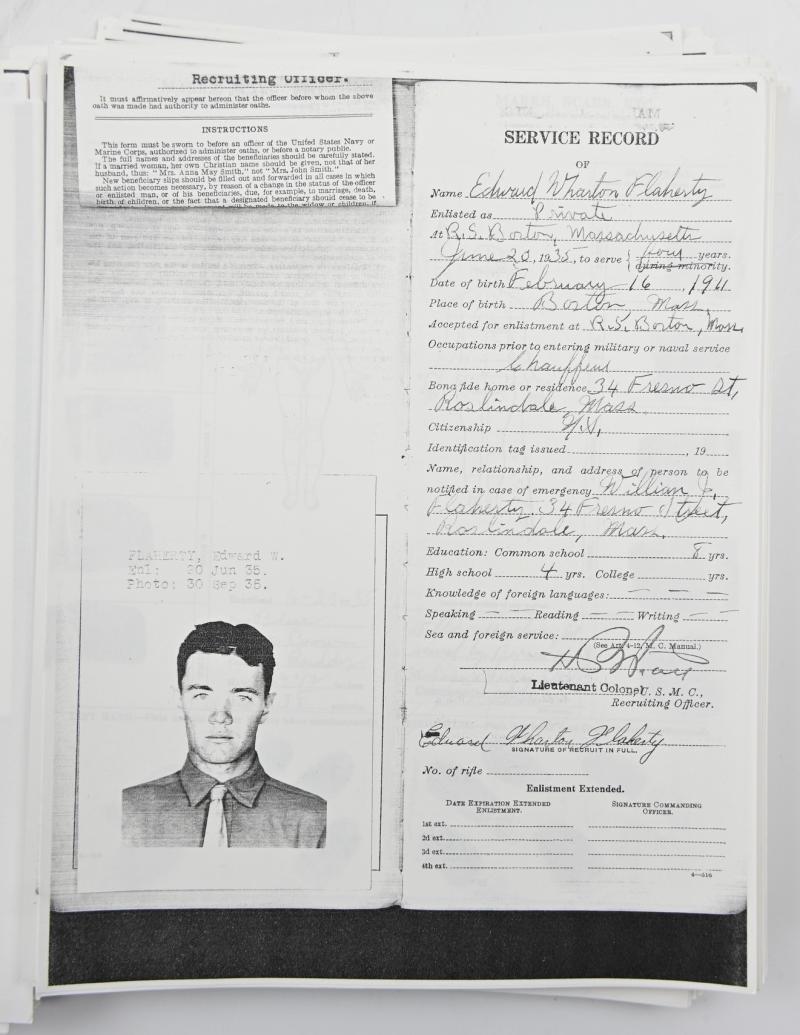 Recruiting Officer.
It must affirmatively appear hereon that the officer before whom the above
oath was made had authority to administer oaths.
INSTRUCTIONS
This form must be sworn to before an officer of the United States Navy or
Marine Corps, authorized to administer oaths, or before a notary public.
The full names and addresses of the beneficiaries should be carefully stated.
If a married woman, her own Christian name should be given, not that of her
husband, thus: "Mrs. Anna May Smith," not "Mrs. John Smith."
New beneficiary slips should be filled out and forwarded in all cases in which
such action becomes necessary, by reason of a change in the status of the officer
or enlisted man, or of his beneficiaries, due, for example, to marriage, death,
birth of children, or the fact that a designated beneficiary should cease to be
FLAHERTY, Edward W.
Enl: 20 Jun 35.
Photo: 30 Sep 35.
SERVICE RECORD
OF
Name Edward Wharton Flaherty
Enlisted as Private
At R.S. Boston, Massachusetts
June 20, 1935, to serve { four years.
during minority.
Date of birth February 16, 1911
Place of birth Boston, Mass.
Accepted for enlistment at R.S. Boston, Mass.
Occupations prior to entering military or naval service
Chauffeur
Bona fide home or residence 34 Fresno St,
Roslindale, Mass.
Citizenship U.S.
Identification tag issued , 19
Name, relationship, and address of person to be
notified in case of emergency William J.
Flaherty, 34 Fresno Street,
Roslindale, Mass.
Education: Common school 8 yrs.
High school 4 yrs. College yrs.
Knowledge of foreign languages: — — —
Speaking — — Reading — — Writing — —
Sea and foreign service:
(See Art. 4-12, M. C. Manual.)
Lieutenant Colonel U. S. M. C.,
Recruiting Officer.
Edward Wharton Flaherty
SIGNATURE OF RECRUIT IN FULL.
No. of rifle
Enlistment Extended.
DATE EXPIRATION EXTENDED ENLISTMENT. SIGNATURE COMMANDING OFFICER.
1st ext.
2d ext.
3d ext.
4th ext.
4—516